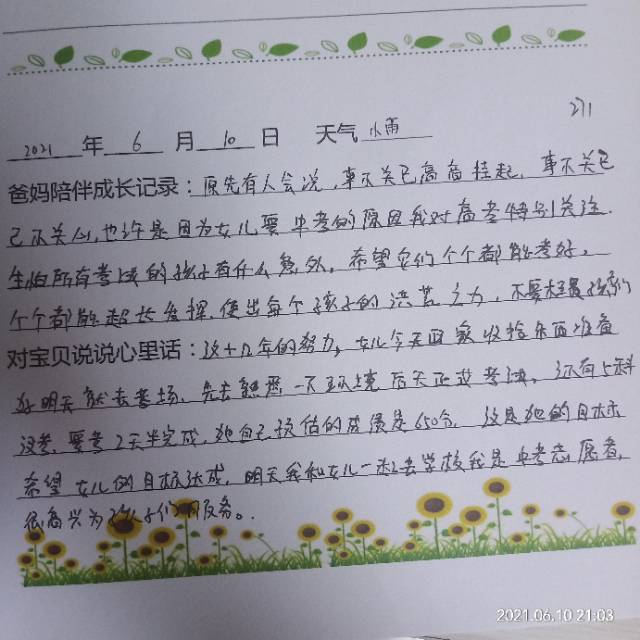 271
2021 年 6 月 10 日 天气 小雨
爸妈陪伴成长记录：原先有人会说，事不关已高高挂起，事不关已
已不关心，也许是因为女儿要中考的原因我对高考特别关注．
生怕所有考试的孩子有什么意外，希望它们个个都能考好，
个个都能超长发挥，使出每个孩子的洪荒之力，不要辜负孩子们
对宝贝说说心里话：这十几年的努力，女儿今天回家收拾东西准备
好明天就去考场，先去熟悉一下环境后天正式考试，还有5科
没考，要考2天半完成，她自己预估的成绩是650分，这是她的目标
希望女儿的目标达成，明天我和女儿一起去学校我是中考志愿者，
很高兴为孩子们服务。
2021.06.10 21:03